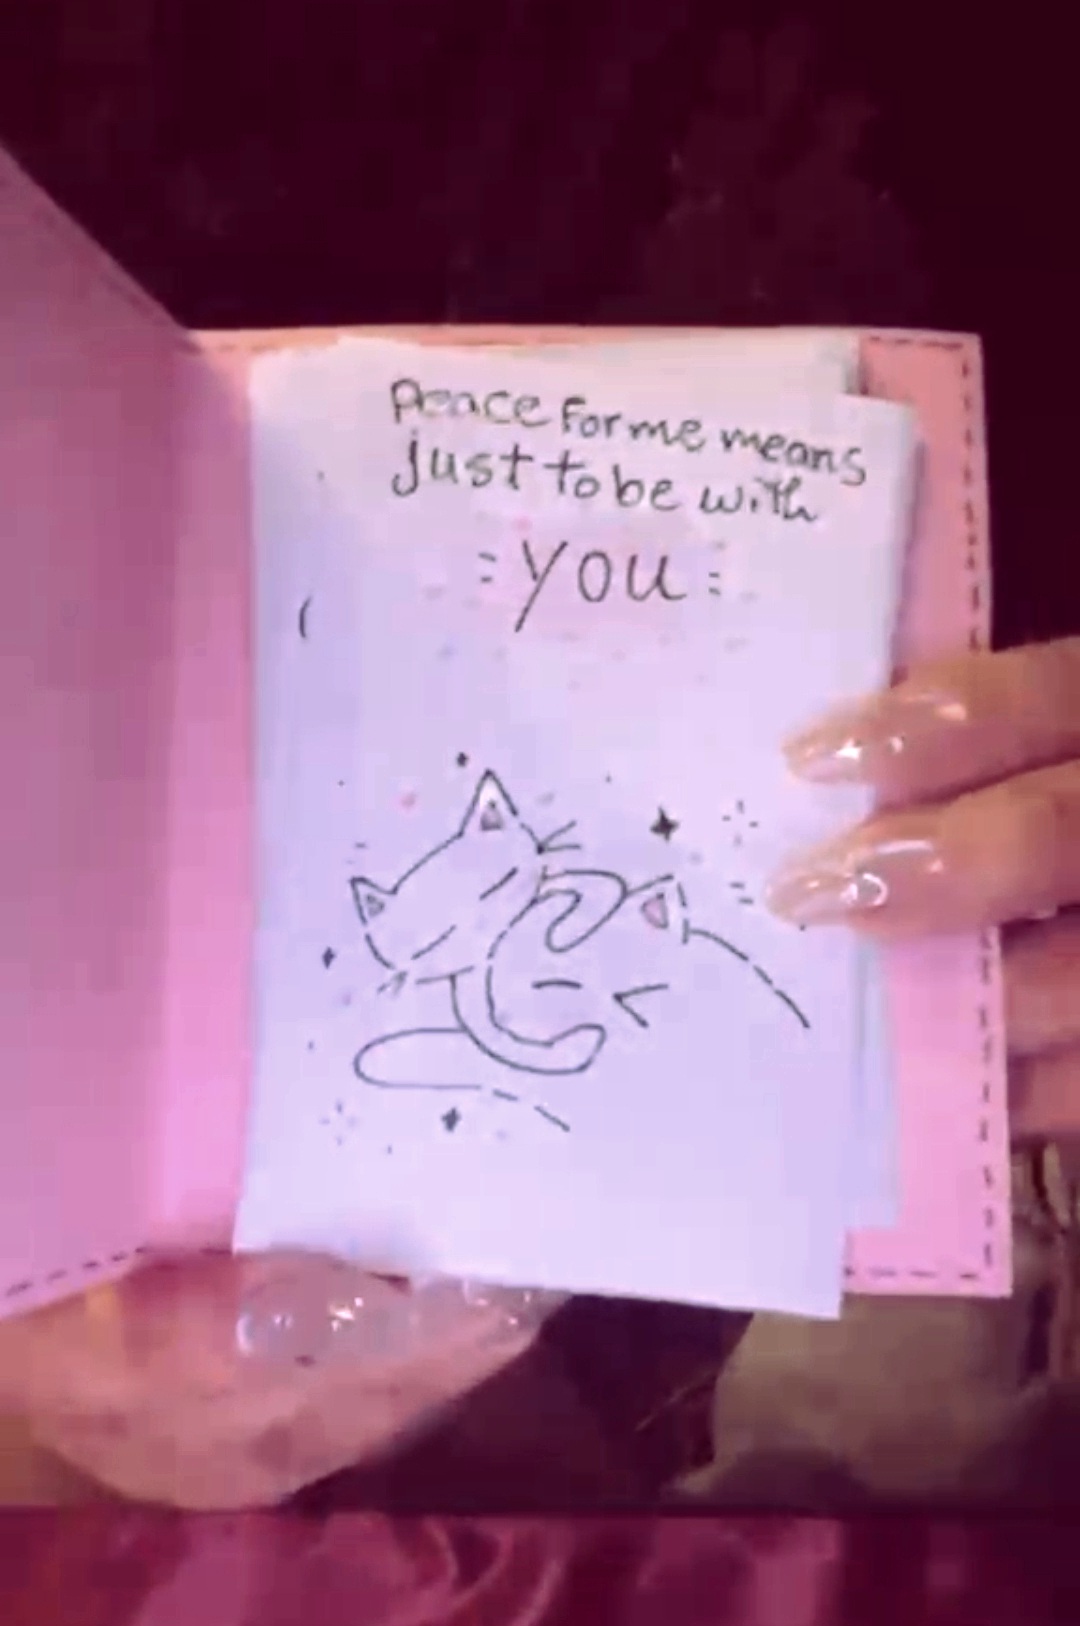 Peace For me means
just to be with
YOU